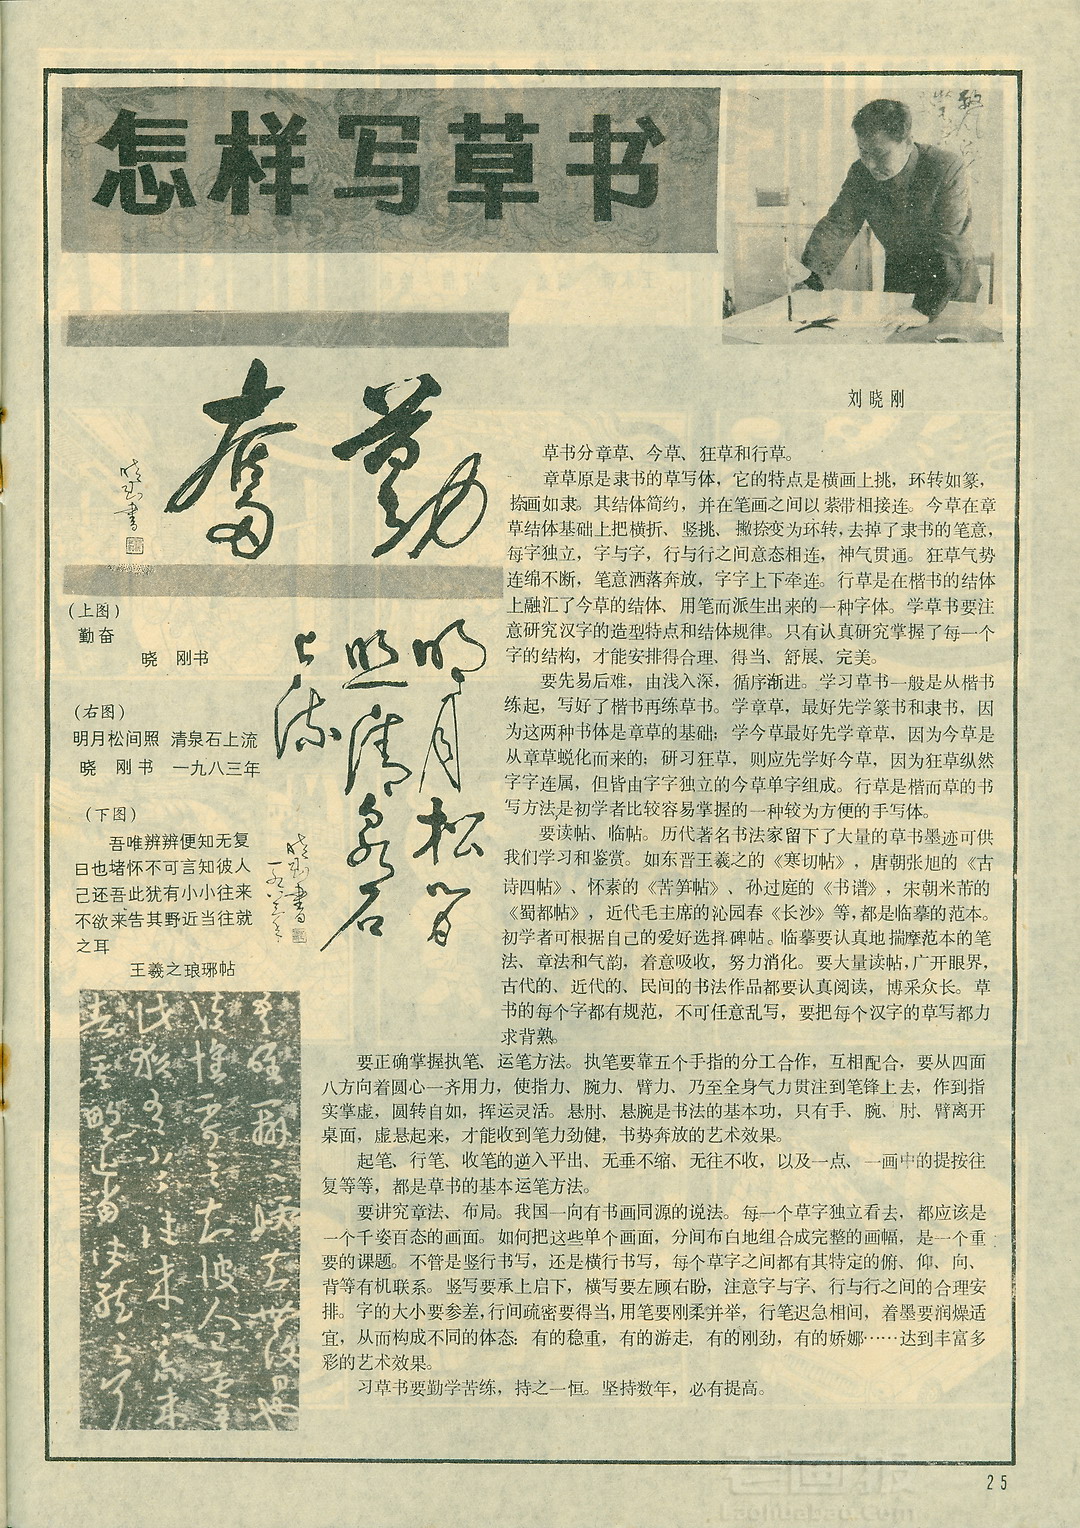 怎样写草书
刘晓刚
勤奋
晓刚书
(上图)
勤奋
晓 刚书
(右图)
明月松间照 清泉石上流
晓 刚书 一九八三年
明月松间
照清泉石
上流
晓刚书
一九八三年
(下图)
吾唯辨辨便知无复
日也堵怀不可言知彼人
己还吾此犹有小小往来
不欲来告其野近当往就
之耳
王羲之琅琊帖
草书分章草、今草、狂草和行草。
章草原是隶书的草写体，它的特点是横画上挑，环转如篆，
捺画如隶。其结体简约，并在笔画之间以萦带相接连。今草在章
草结体基础上把横折、竖挑、撇捺变为环转，去掉了隶书的笔意，
每字独立，字与字，行与行之间意态相连，神气贯通。狂草气势
连绵不断，笔意洒落奔放，字字上下牵连。行草是在楷书的结体
上融汇了今草的结体、用笔而派生出来的一种字体。学草书要注
意研究汉字的造型特点和结体规律。只有认真研究掌握了每一个
字的结构，才能安排得合理、得当、舒展、完美。
要先易后难，由浅入深，循序渐进。学习草书一般是从楷书
练起，写好了楷书再练草书。学章草，最好先学篆书和隶书，因
为这两种书体是章草的基础；学今草最好先学章草，因为今草是
从章草蜕化而来的；研习狂草，则应先学好今草，因为狂草纵然
字字连属，但皆由字字独立的今草单字组成。行草是楷而草的书
写方法，是初学者比较容易掌握的一种较为方便的手写体。
要读帖、临帖。历代著名书法家留下了大量的草书墨迹可供
我们学习和鉴赏。如东晋王羲之的《寒切帖》，唐朝张旭的《古
诗四帖》、怀素的《苦笋帖》、孙过庭的《书谱》，宋朝米芾的
《蜀都帖》，近代毛主席的沁园春《长沙》等，都是临摹的范本。
初学者可根据自己的爱好选择碑帖。临摹要认真地揣摩范本的笔
法、章法和气韵，着意吸收，努力消化。要大量读帖，广开眼界，
古代的、近代的、民间的书法作品都要认真阅读，博采众长。草
书的每个字都有规范，不可任意乱写，要把每个汉字的草写都力
求背熟。
要正确掌握执笔、运笔方法。执笔要靠五个手指的分工合作，互相配合，要从四面
八方向着圆心一齐用力，使指力、腕力、臂力、乃至全身气力贯注到笔锋上去，作到指
实掌虚，圆转自如，挥运灵活。悬肘、悬腕是书法的基本功，只有手、腕、肘、臂离开
桌面，虚悬起来，才能收到笔力劲健，书势奔放的艺术效果。
起笔、行笔、收笔的逆入平出、无垂不缩、无往不收，以及一点、一画中的提按往
复等等，都是草书的基本运笔方法。
要讲究章法、布局。我国一向有书画同源的说法。每一个草字独立看去，都应该是
一个千姿百态的画面。如何把这些单个画面，分间布白地组合成完整的画幅，是一个重
要的课题。不管是竖行书写，还是横行书写，每个草字之间都有其特定的俯、仰、向、
背等有机联系。竖写要承上启下，横写要左顾右盼，注意字与字、行与行之间的合理安
排。字的大小要参差，行间疏密要得当，用笔要刚柔并举，行笔迟急相间，着墨要润燥适
宜，从而构成不同的体态：有的稳重，有的游走，有的刚劲，有的娇娜……达到丰富多
彩的艺术效果。
习草书要勤学苦练，持之一恒。坚持数年，必有提高。
25
老画报
Laohuabao.Com